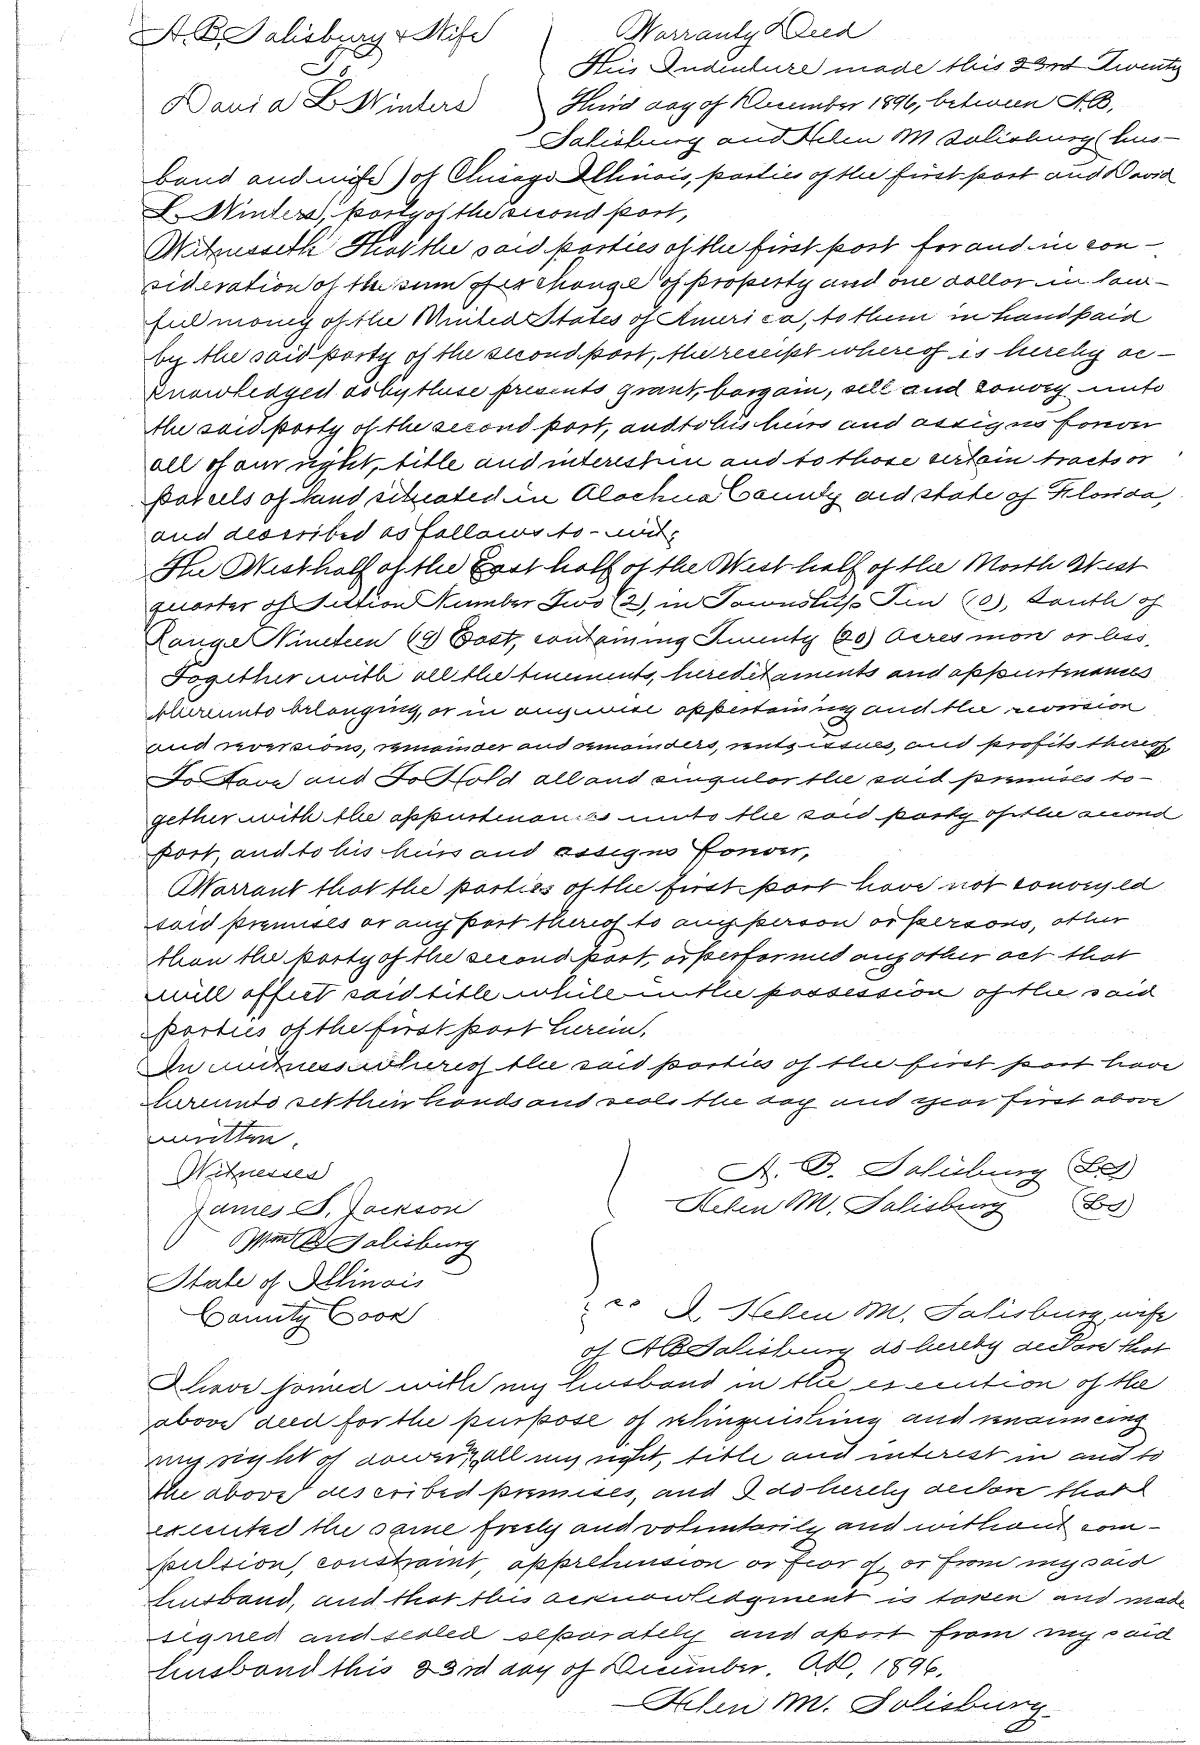 A. B. Salisbury & Wife
To
David L Winters
Warranty Deed
This Indenture made this 23rd Twenty
Third day of December 1896, between A.B.
Salisbury and Helen M Salisbury (hus-
band and wife) of Chicago Illinois, parties of the first part and David
L. Winters, party of the second part,
Witnesseth That the said parties of the first part for and in con-
sideration of the sum of exchange of property and one dollar in law-
ful money of the United States of America, to them in hand paid
by the said party of the second part, the receipt whereof is hereby ac-
knowledged do by these presents grant, bargain, sell and convey unto
the said party of the second part, and to his heirs and assigns forever
all of our right, title and interest in and to those certain tracts or
parcels of land situated in Alachua County and state of Florida,
and described as follows to-wit;
The West half of the East half of the West half of the North West
quarter of Section Number Two (2), in Township Ten (10), South of
Range Nineteen (19) East, containing Twenty (20) Acres more or less.
Together with all the tenements, hereditaments and appurtenances
thereunto belonging, or in anywise appertaining and the reversion
and reversions, remainder and remainders, rents, issues, and profits thereof
To Have and To Hold all and singular the said premises to-
gether with the appurtenances unto the said party of the second
part, and to his heirs and assigns forever,
Warrant that the parties of the first part have not conveyed
said premises or any part thereof to any person or persons, other
than the party of the second part, or performed any other act that
will affect said title while in the possession of the said
parties of the first part herein.
In witness whereof the said parties of the first part have
hereunto set their hands and seals the day and year first above
written.
Witnesses
James S. Jackson
Wm B Salisbury
A. B. Salisbury (LS)
Helen M. Salisbury (LS)
State of Illinois
County Cook
ss I, Helen M. Salisbury, wife
of AB Salisbury do hereby declare that
I have joined with my husband in the execution of the
above deed for the purpose of relinquishing and renouncing
my right of dower, & all my right, title and interest in and to
the above described premises, and I do hereby declare that I
executed the same freely and voluntarily and without com-
pulsion, constraint, apprehension or fear of, or from my said
husband, and that this acknowledgment is taken and made
signed and sealed separately and apart from my said
husband this 23rd day of December. A.D. 1896.
Helen M. Salisbury